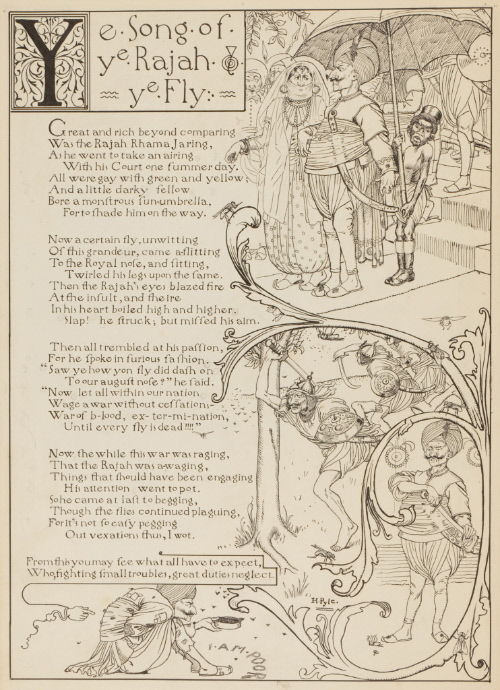 Ye Song of
ye Rajah &
ye Fly:
Great and rich beyond comparing
Was the Rajah Rhama Jaring,
As he went to take an airing
With his Court one summer day.
All were gay with green and yellow;
And a little darky fellow
Bore a monstrous sun-umbrella,
For to shade him on the way.
Now a certain fly, unwitting
Of this grandeur, came a-flitting
To the Royal nose, and sitting,
Twirled his legs upon the same.
Then the Rajah's eyes blazed fire
At the insult, and the ire
In his heart boiled high and higher.
Slap! he struck, but missed his aim.
Then all trembled at his passion,
For he spoke in furious fashion.
"Saw ye how yon fly did dash on
To our august nose?" he said.
"Now let all within our nation
Wage a war without cessation—
War of b-lood, ex-ter-mi-nation,
Until every fly is dead!!!!"
Now the while this war was raging,
That the Rajah was a-waging,
Things that should have been engaging
His attention went to pot.
So he came at last to begging,
Though the flies continued plaguing,
For it's not so easy pegging
Out vexations thus, I wot.
From this you may see what all have to expect,
Who, fighting small troubles, great duties neglect.
H. Pyle.
I·AM·POOR